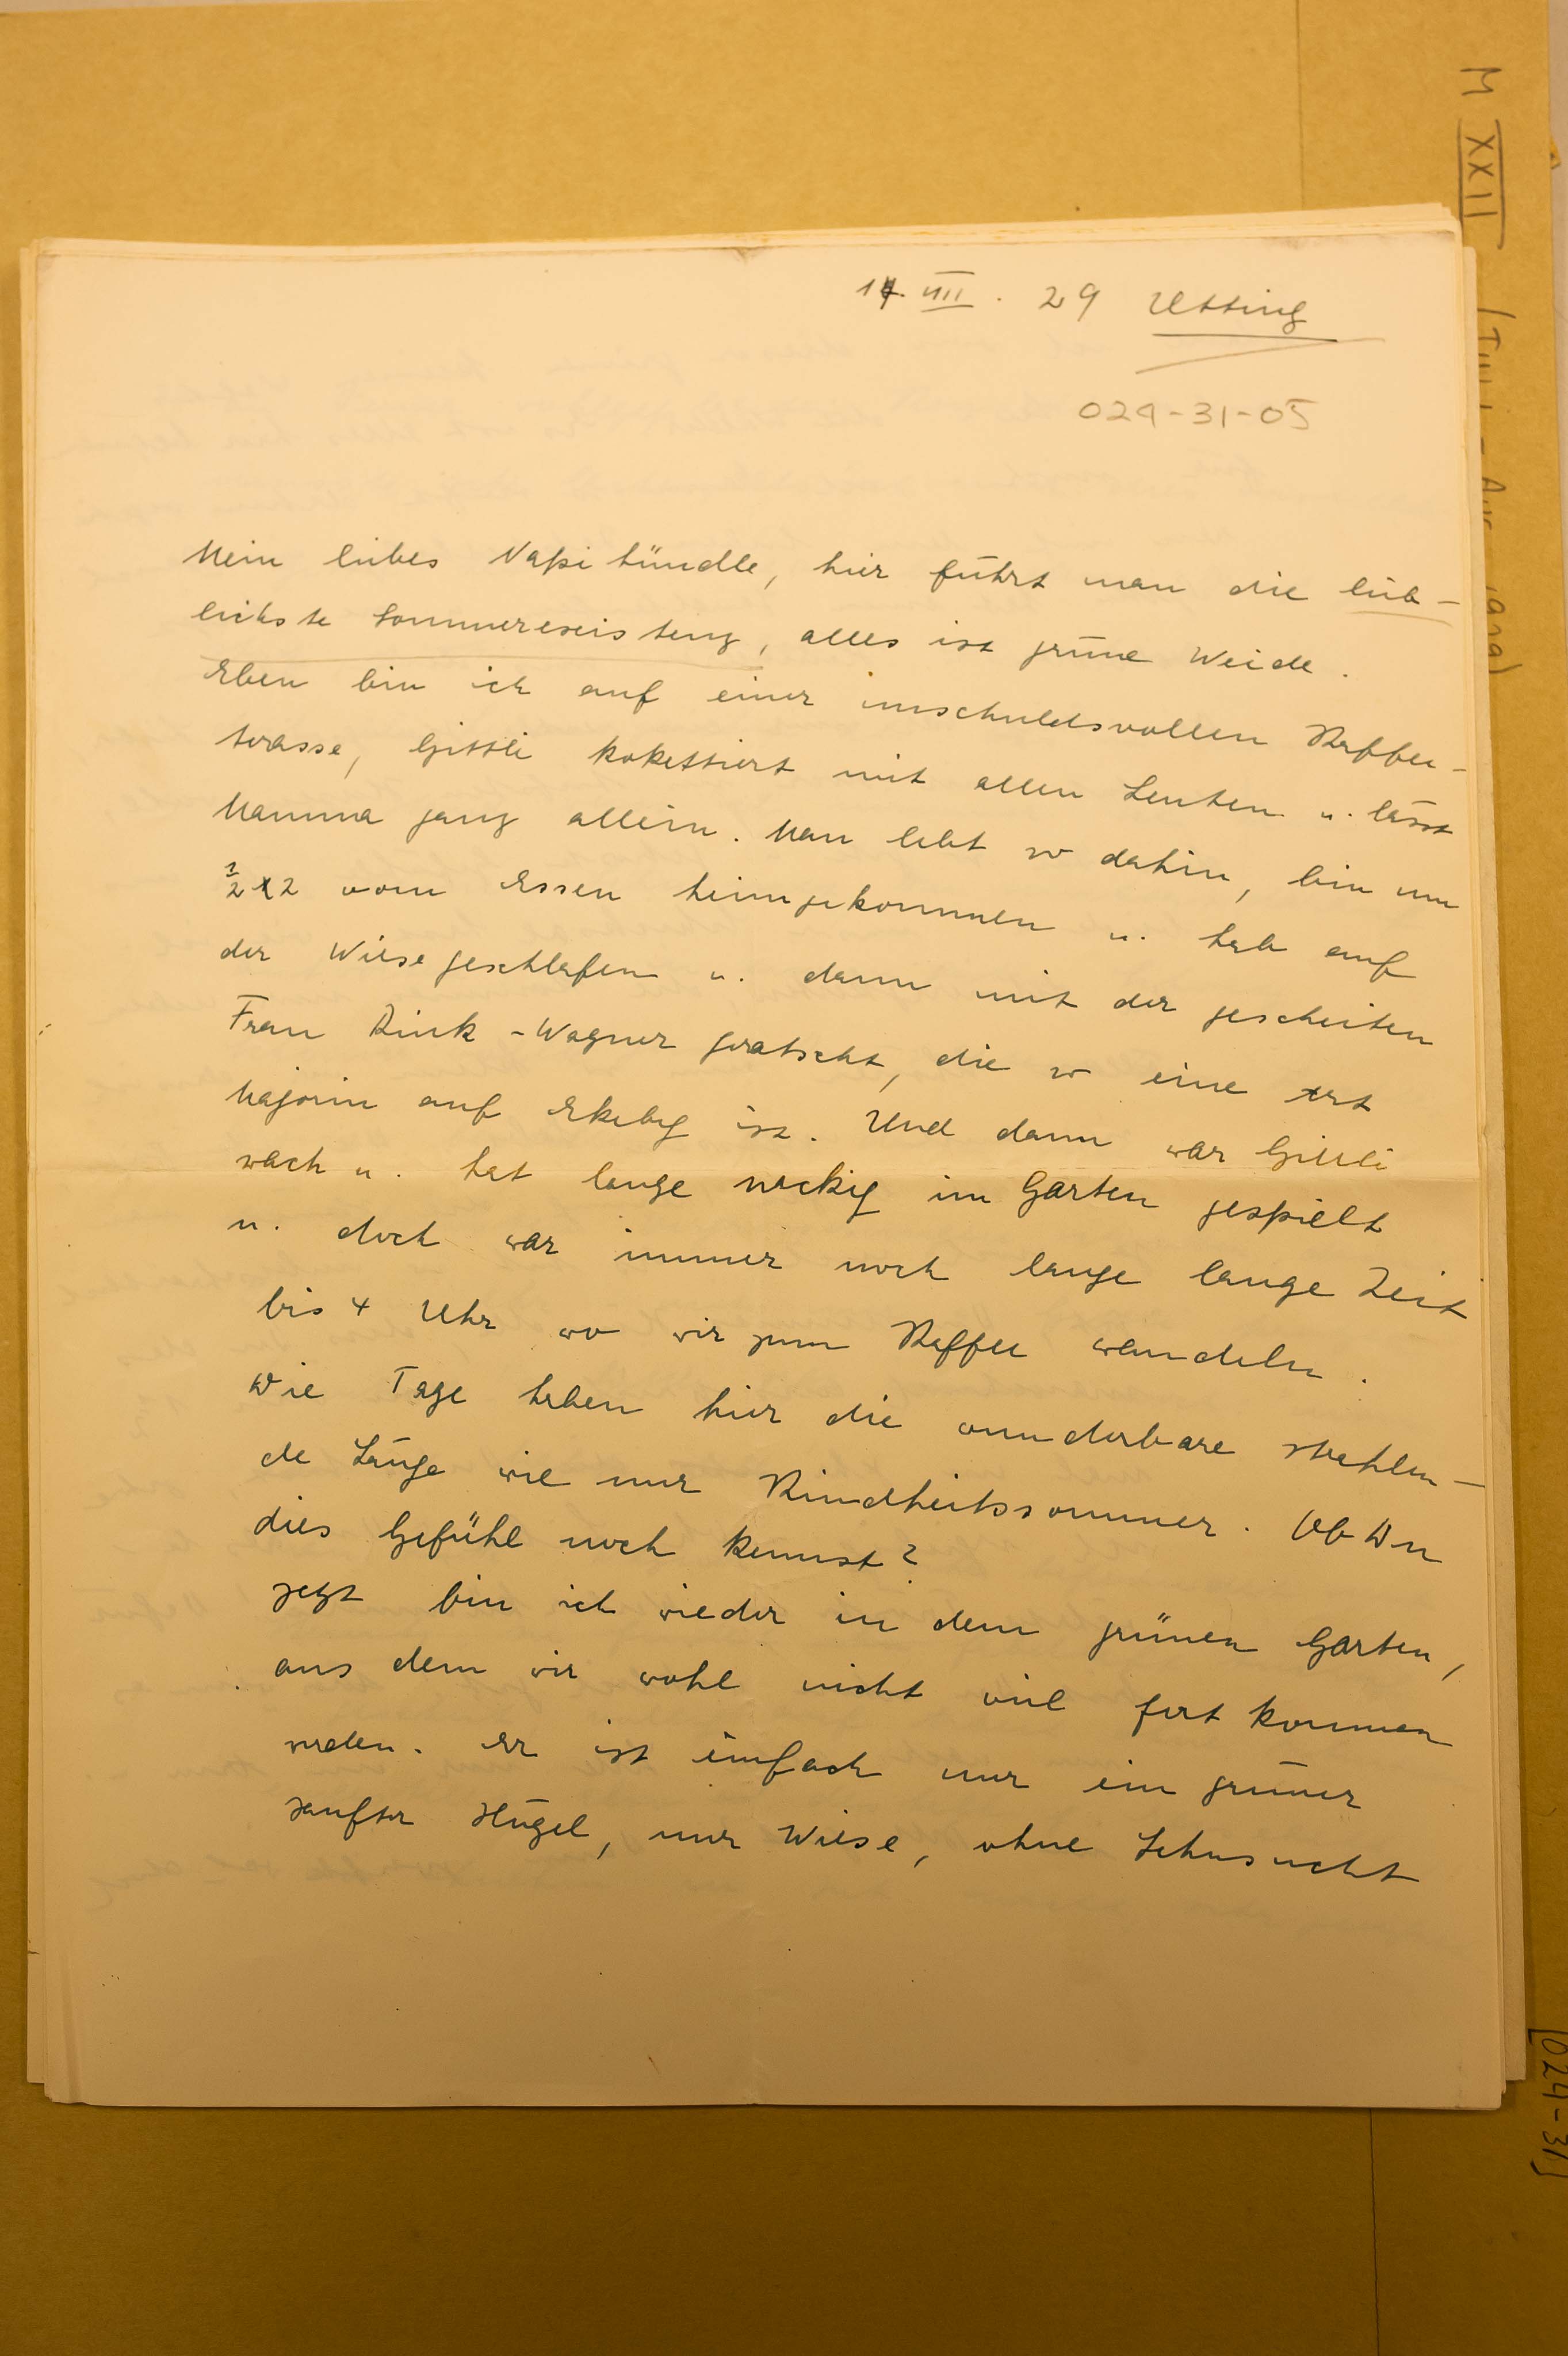 M XXII
14. VIII. 29 Utting
029-31-05
Mein liebes Napihündle, hier führt man die lieb-
lichste Sommerexistenz, alles ist grüne Weide.
Eben bin ich auf einer unschuldsvollen Kaffee-
terasse, Gittli kokettiert mit allen Leuten u. lässt
Mamma ganz allein. Man lebt so dahin, bin um
½ 2 vom Essen heimgekommen u. hab auf
der Wiese geschlafen u. dann mit der gescheiten
Frau Rink-Wagner gratscht, die so eine Art
Majorin auf Ekeby ist. Und dann war Gittli
wach u. hat lange nackig im Garten gespielt
u. doch war immer noch lange lange Zeit
bis 4 Uhr wo wir zum Kaffee wandeln.
Die Tage haben hier die wunderbare strahlen-
de Länge wie nur Kindheitssommer. Ob Du
dies Gefühl noch kennst?
Jetzt bin ich wieder in dem grünen Garten,
aus dem wir wohl nicht viel fort kommen
werden. Er ist einfach nur ein grüner
sanfter Hügel, nur Wiese, ohne Sehnsucht
[029-31]